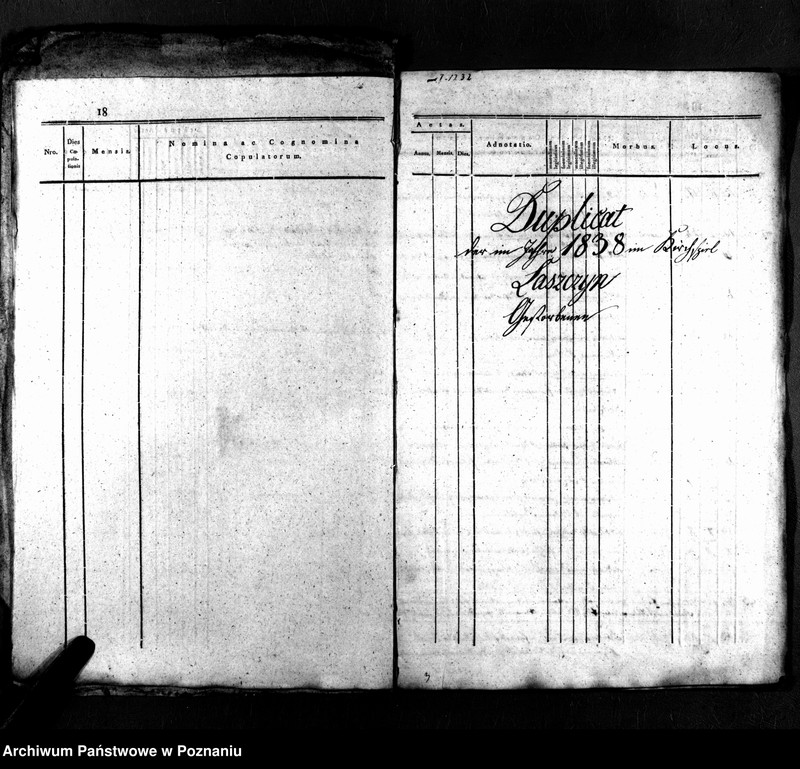 18
Nro.
Dies Copulationis
Mensis.
Nomina ac Cognomina
Copulatorum.
Aetas.
Annus.
Mensis.
Dies.
Adnotatio.
Morbus.
Locus.
Duplicat
der im Jahre 1838 im Kirchspiel
Laszczyn
Gestorbenen
Archiwum Państwowe w Poznaniu